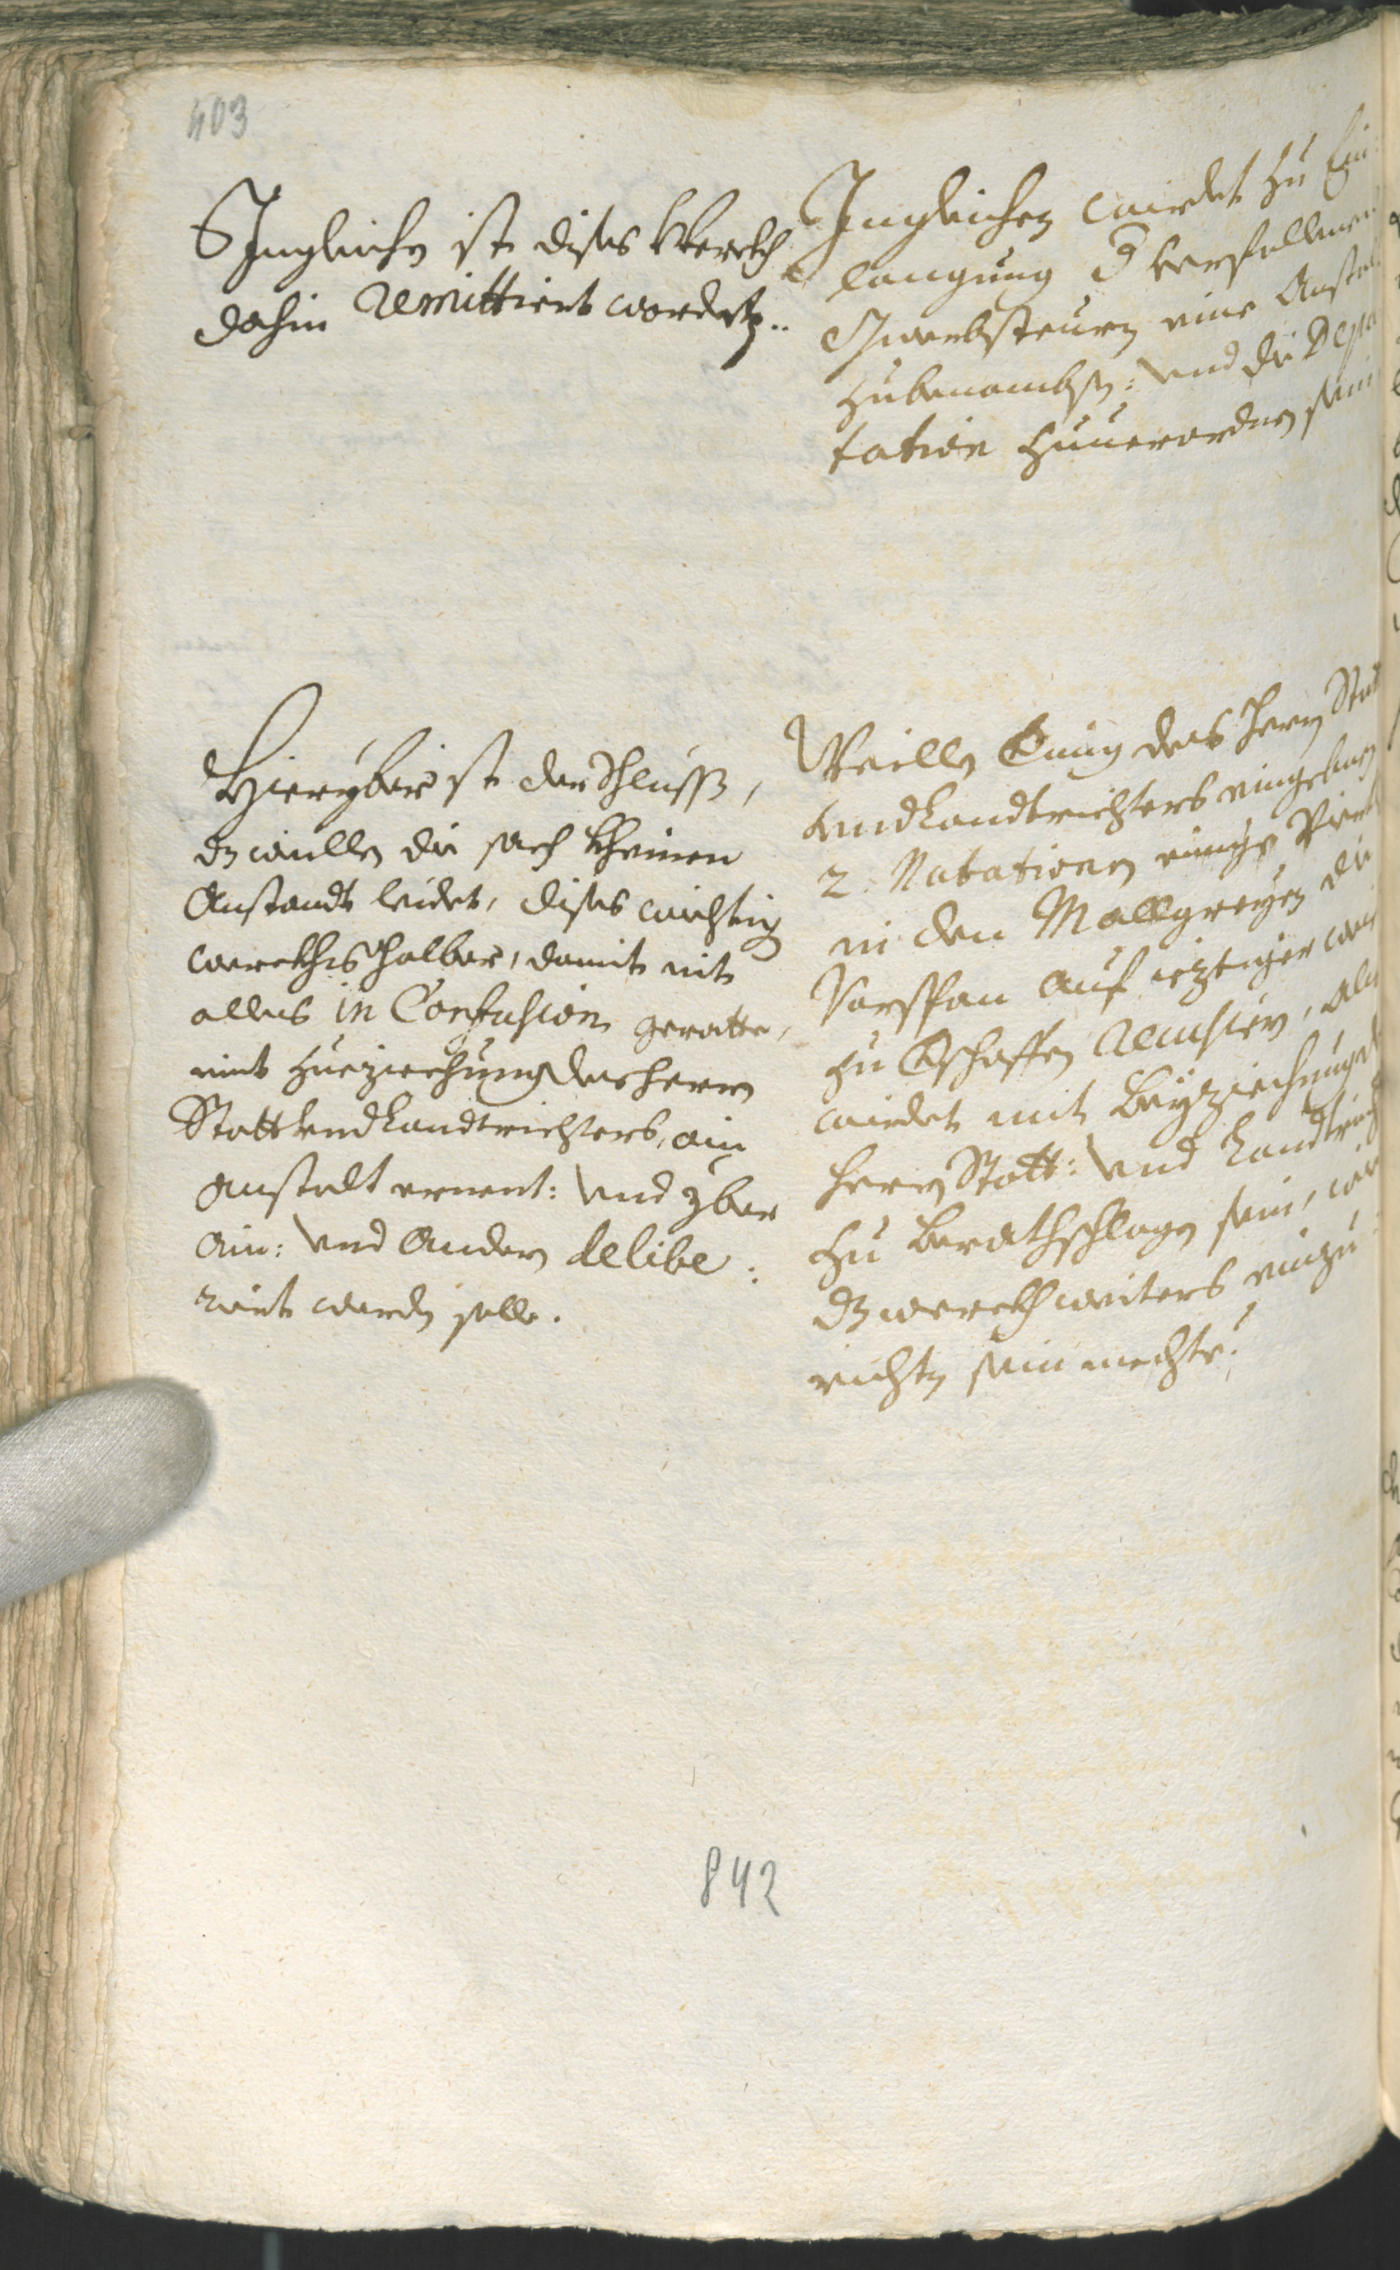 403
Ingleichn ist dises Werckh
dahin Remittiert wordtn..
Ingleichen wierdet zu Ein-
langung d verfallenen
Gwerbsteurn eine Anstal
zubenambsn: und die Depu
tation zuuerordnen sein
Hierÿber ist der Schluss,
dz weillen die sach kheinen
Anstandt leidet, dises wichtig
werckhs halber, damit nit
alles in Confusion geratte,
mit zueziechung des herrn
Statt und Landtrichters, ain
Anstalt ernent: und ÿber
Ain: und Andern delibe:
riert werdn solle.
Weilln des Herrn Stat
und Landtrichters eingebnen
2. Notationen einige
in den Mallgreyen die
Vorspan auf ietziger
zu Eschaffen Recusiern,
wierdet mit Beyziechung
herrn Statt: und Landtrich
zu berathschlagen sein, wie
dz werckh weiters einzu
richtn sein mechte?
842